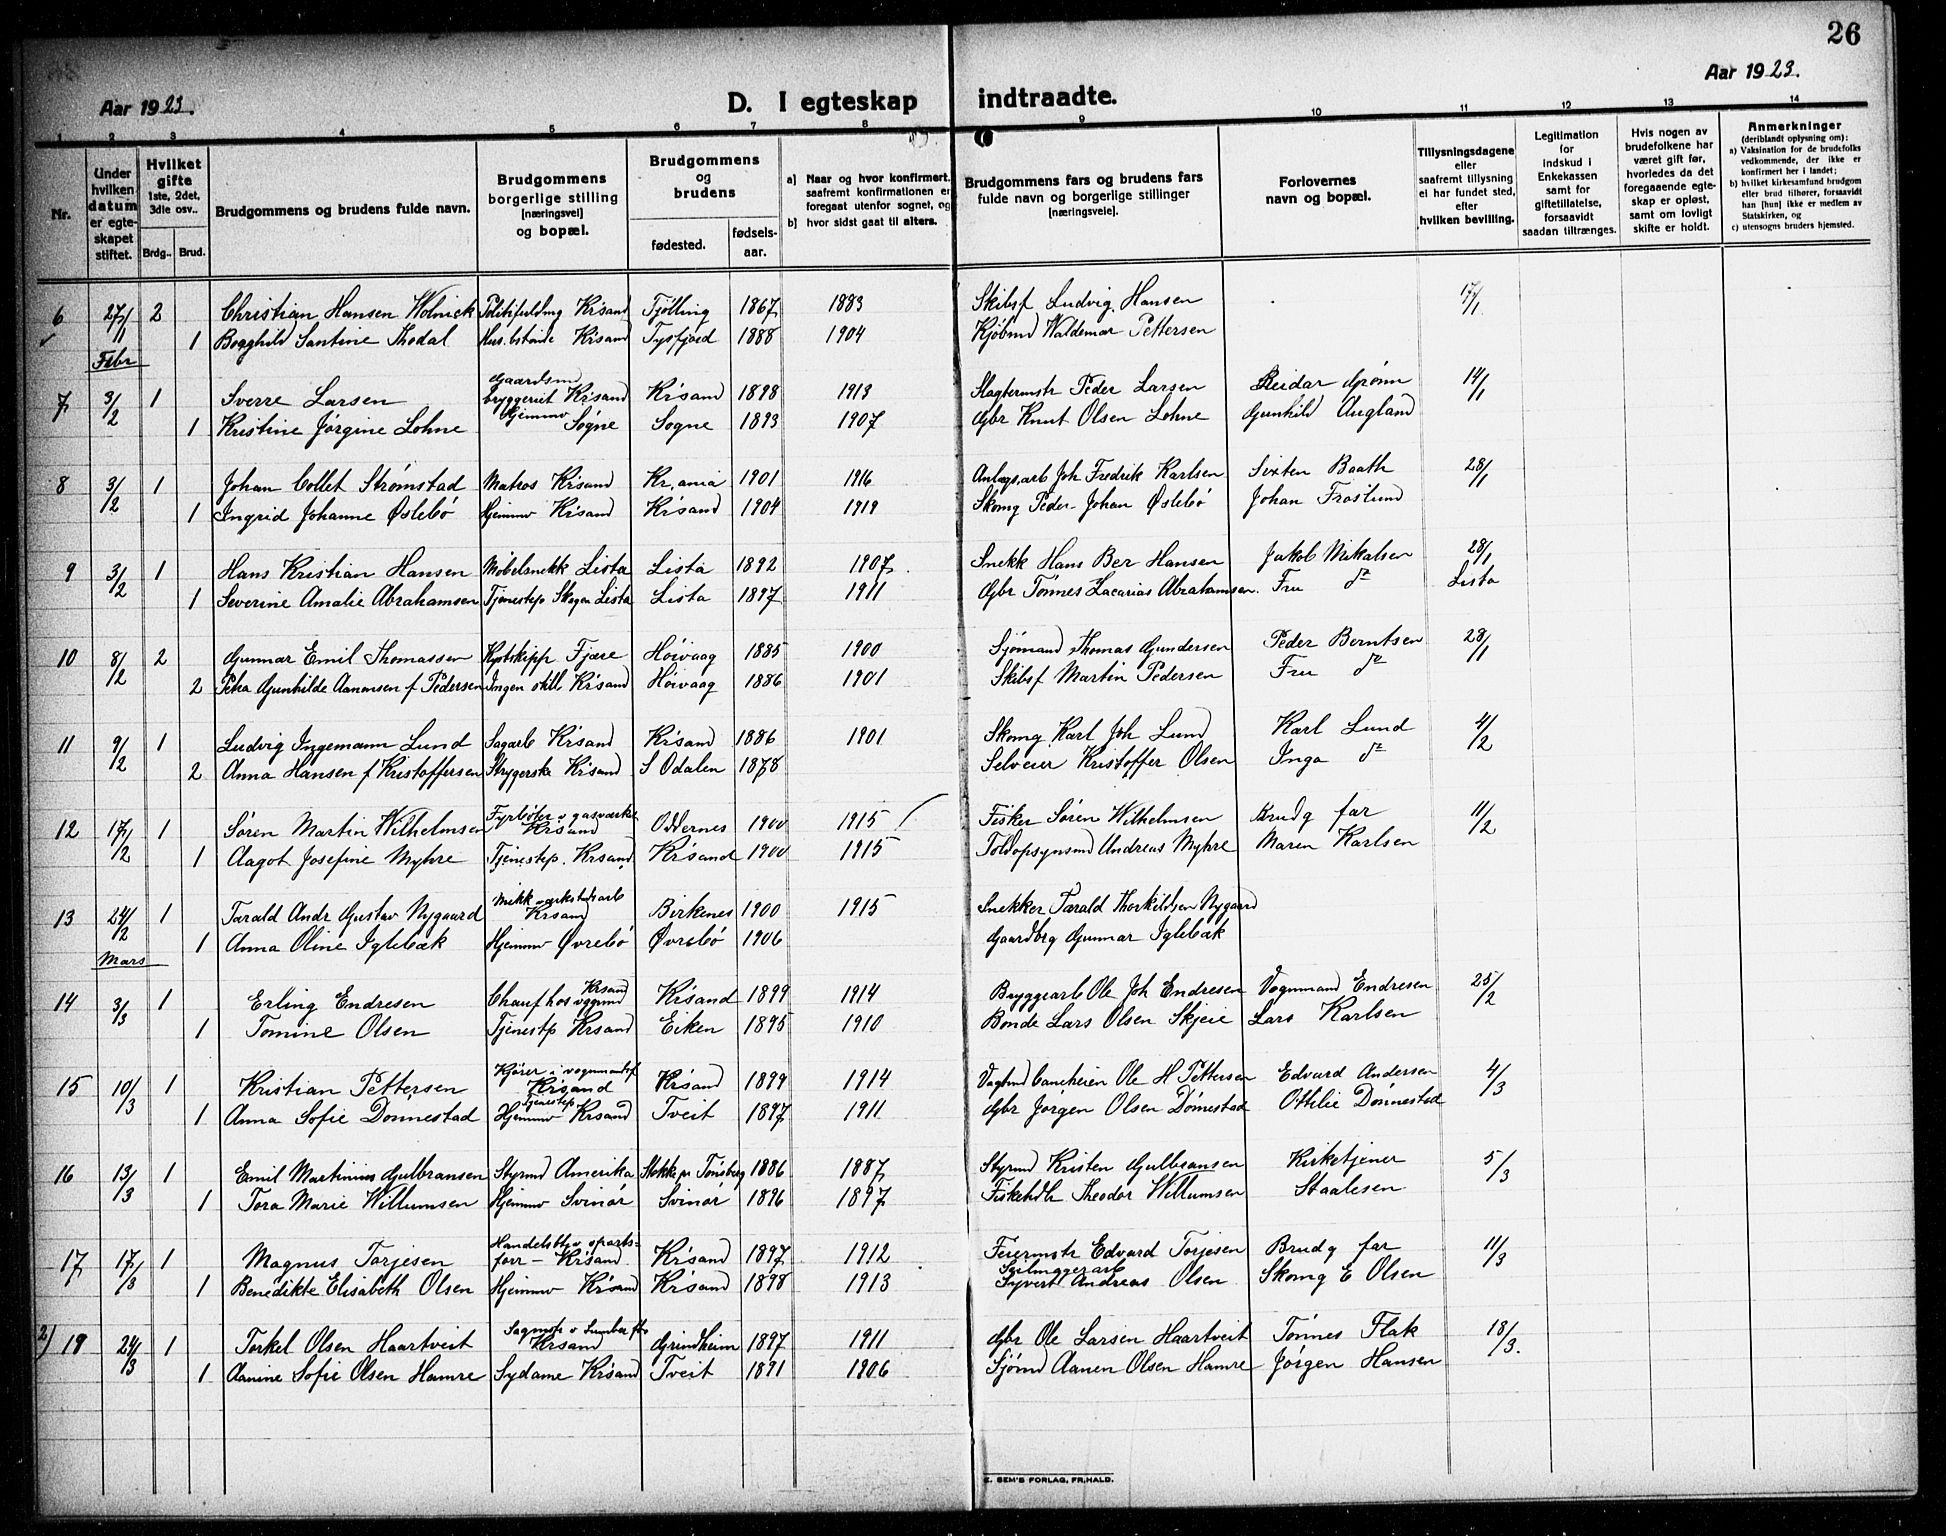 26
Aar 1923.
Aar 1923.
D. I egteskap indtraadte.
1 2 3 4 5 6 7 8 9 10 11 12 13 14
Nr.
Under hvilken datum er egteskapet stiftet.
Hvilket gifte 1ste, 2det, 3die osv..
Brdg.. Brud.
Brudgommens og brudens fulde navn.
Brudgommens borgerlige stilling [næringsvei] og bopæl.
Brudgommens og brudens
fødested.
fødselsaar.
a] Naar og hvor konfirmert, saafremt konfirmationen er foregaat utenfor sognet, og
b] hvor sidst gaat til alters.
Brudgommens fars og brudens fars fulde navn og borgerlige stillinger [næringsveie].
Forlovernes navn og bopæl.
Tillysningsdagene eller saafremt tillysning ei har fundet sted, efter hvilken bevilling.
Legitimation for indskud i Enkekassen samt for giftetillatelse, forsaavidt saadan tiltrænges.
Hvis nogen av brudefolkene har været gift før, hvorledes da det foregaaende egteskap er opløst, samt om lovligt skifte er holdt.
Anmerkninger (deriblandt oplysning om):
a) Vaksination for de brudefolks vedkommende, der ikke er konfirmert her i landet;
b) hvilket kirkesamfund brudgom eller brud tilhører, forsaavidt han [hun] ikke er medlem av Statskirken, og
c) utensogns bruders hjemsted.
6 27/1 2 Christian Hansen Wolnick Politifuldmg Kr'sand Tjølling 1867 1883 Skibsf Ludvig Hansen 17/1
1 Borghild Santine Thodal Hus.bstinde Kr'sand Tysfjord 1888 1904 Kjøbmd Waldemar Pettersen
Febr
7 3/2 1 Sverre Larsen Gaardsm bryggeriet Kr'sand Kr'sand 1898 1913 Slagtermstr Peder Larsen Reidar Grønn 14/1
1 Kristine Jørgine Lohne Hjemmv Søgne Søgne 1893 1907 Gbr Knut Olsen Lohne Gunhild Augland
8 3/2 1 Johan Collet Strømstad Matros Kr'sand Kr.ania 1901 1916 Anlægs.arb Joh Fredrik Karlsen Sixten Baath 28/1
1 Ingrid Johanne Øslebø Hjemmv Kr'sand Kr'sand 1904 1919 Skomg Peder Johan Øslebø Johan Frøslund
9 3/2 1 Hans Kristian Hansen Møbelsnekk Lista Lista 1892 1907. Snekk Hans Ber Hansen Jakob Mikalsen 28/1
1 Severine Amalie Abrahamsen Tjenestep Skagen Lista Lista 1897 1911 Gbr Tønnes Zacarias Abrahamsen. Fru do Lista
10 8/2 2 Gunnar Emil Thomassen Kystskipp Fjære Høivaag 1885 1900 Sjømand Thomas Gundersen Peder Berntsen 28/1
2 Petra Gunhilde Aanonsen f Pedersen Ingen still Kr'sand Høivaag 1886 1901 Skibsf Martin Pedersen Fru do
11 9/2 1 Ludvig Ingemann Lund Sagarb Kr'sand Kr'sand 1886 1901 Skomg Karl Joh Lund Karl Lund 4/2
2 Anna Hansen f Kristoffersen Strygerske Kr'sand S Odalen 1878 Selveier Kristoffer Olsen Inga do
12 17/2 1 Søren Martin Wilhelmsen Fyrbøter v gasverket Kr'sand Oddernes 1900 1915 Fisker Søren Wilhelmsen Brudg far 11/2
1 Aagot Josefine Myhre Tjenestep. Kr'sand Kr'sand 1900 1915 Toldopsynsmd Andreas Myhre Maren Karlsen
13 24/2 1 Tarald Andr Gustav Nygaard Mekk verkstedsarb Kr'sand Birkenes 1900 1915 Snekker Tarald Thorkildsen Nygaard
1 Anna Oline Iglebæk Hjemmv Øvrebø Øvrebø 1906 Gaardbrg Gunnar Iglebæk
Mars
14 3/3 1 Erling Endresen Chauf hos vognmd Kr'sand Kr'sand 1899 1914 Bryggearb Ole Joh Endresen Vognmand Endresen 25/2
1 Tomine Olsen Tjenestp Kr'sand Eiken 1895 1910 Bonde Lars Olsen Skjeie Lars Karlsen
15 10/3 1 Kristian Pettersen Kjører i vognmandsf Kr'sand Kr'sand 1899 1914 Ole H Pettersen Edvard Andersen 4/3
1 Anna Sofie Dønnestad Tjenestep Hjemmv Kr'sand Tveit 1897 1911 Gbr Jørgen Olsen Dønnestad Ottilie Dønnestad
16 13/3 1 Emil Martinius Gulbransen Styrmd Amerika Stokke pr Tønsberg 1886 1887 Styrmd Kristen Gulbransen Kirketjener 5/3
1 Tora Marie Willumsen Hjemmv Svinør Svinør 1896 1897 Fiskehdlr Theodor Willumsen Staalesen
17 17/3 1 Magnus Torjesen Handelsbtj v sportsforr- Kr'sand Kr'sand 1897 1912 Feiermstr Edvard Torjesen Brudg far 11/3
1 Benedikte Elisabeth Olsen Hjemmv Kr'sand Kr'sand 1898 1913 Syvert Andreas Olsen Skomg E Olsen
2) 19 24/3 1 Torkel Olsen Haartveit Sagmstr v Kr'sand Grindheim 1897 1911 Gbr Ole Larsen Haartveit Tønnes Flak 18/3.
1 Aanine Sofie Olsen Hamre Sydame Kr'sand Tveit 1891 1906 Sjømd Aanen Olsen Hamre Jørgen Hansen
E. SEM'S FORLAG, FR.HALD.